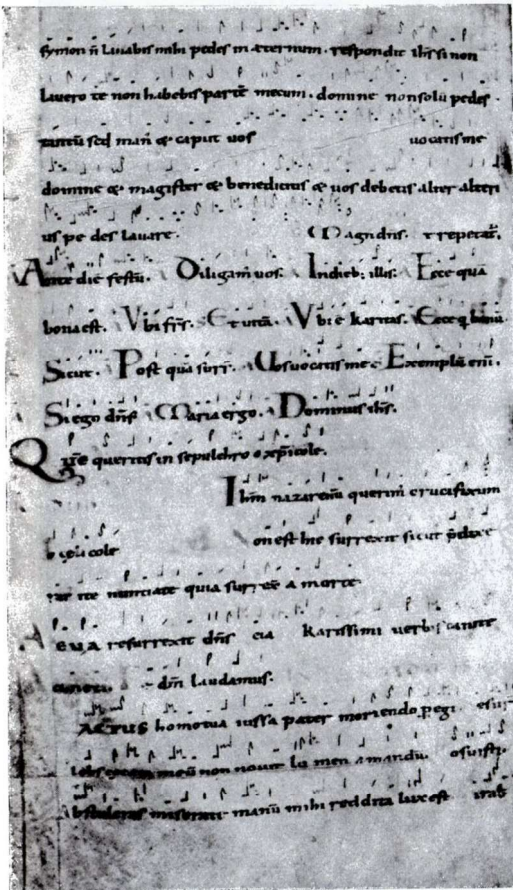 symon n̄ lauabis mihi pedes in æternum. respondit ih̄s si non
lauero te non habebis partē mecum. domine non solū pedes
tantū sed man̄ & caput uos uocatis me
domine & magister & benedictus & uos debetis alter alteri
us pe des lauare. Magr̄ dn̄s. repetat̄.
Ante diē festū. Diligam̄ uos. In dieb; illis. Ecce quā
bona est. Vbi fr̄s. Vbi ē karitas. Ecce q̄ bonū
Sicut. Post quā surr̄. Vos uocatis me Exemplū em̄.
Si ego dn̄s Maria ergo. Dominus ih̄s.
Quē queritis in sepulchro o xp̄icole.
Ihm̄ nazarenū querim̄ crucifixum
o cęlicole on est hic surrexit sicut p̄dixe
rat ite nunciate quia surrex̄ a morte
EUA resurrexit dn̄s eia karissimi uerbis canite
dm̄ laudamus.
FACTUS homo tua iussa pater moriendo pegi
meū non nouit lumen amandū. osuisti.
miserati manū mihi reddita lux est